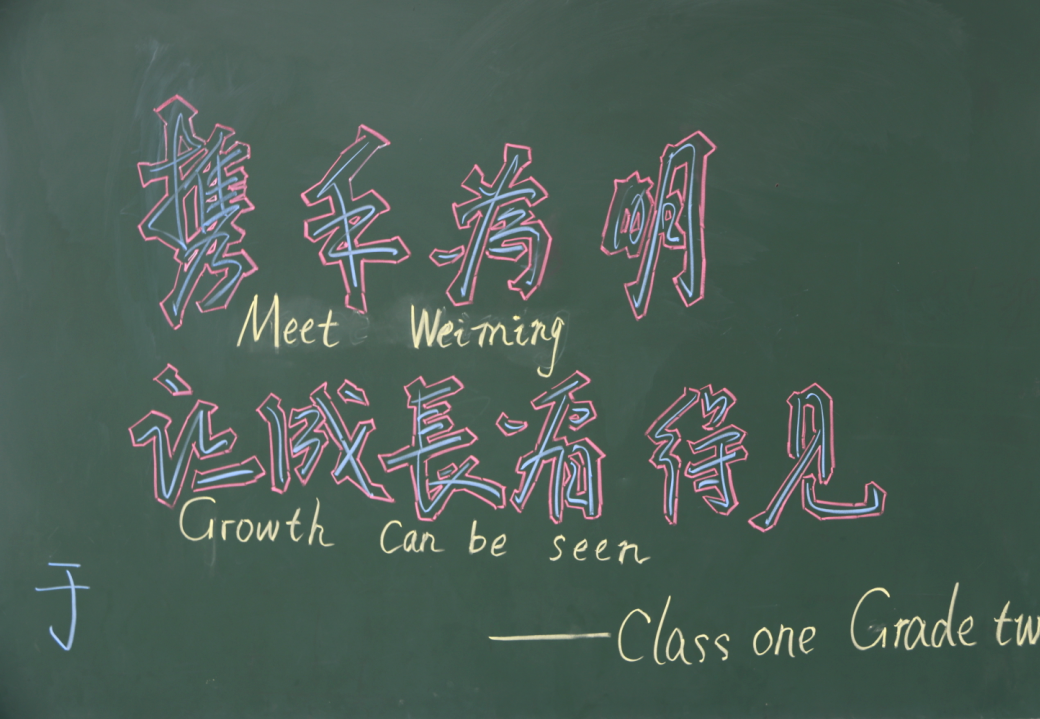 携手為明
Meet Weiming
让成長看得见
Growth can be seen
于
——Class one Grade tw